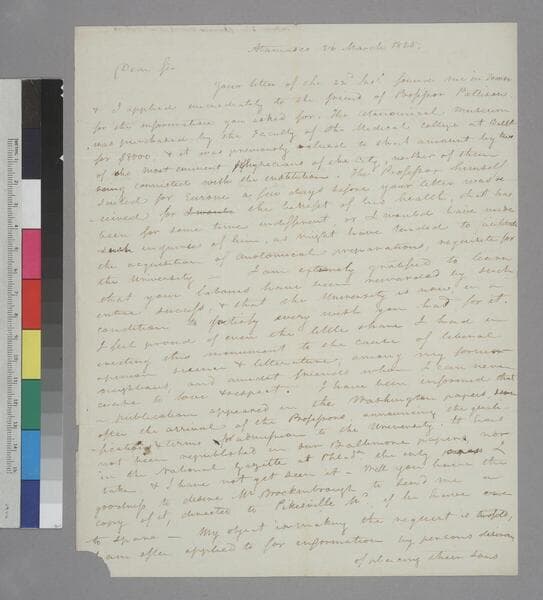 March 1825.
Dear Sir
Your letter of the 22d Inst found me in Town
& I applied immediately to the friend of Professor Pattison
for the information you asked for. The Anatomical museum
was purchased by the Faculty of the Medical College at Balte
for $8000. & it was previously valued to that amount by two
of the most eminent physicians of the City, neither of them
being connected with the institution. The Professor himself
sailed for Europe a few days before your letter was re
ceived for the benefit of his health, that has
been for some time indifferent or I would have made
such enquiries of him, as might have tended to
the acquisition of anatomical preparations, requisite for
the University — I am extremely gratified to learn
that your labours have been rewarded by such
entire success, & that the University is now in a
condition to every wish you had for it.
I feel proud of even the little share I had in
erecting this monument to the cause of liberal
opinion science & litterature, among my former
neighbours, and amidst friends whom I can never
cease to love & respect. I have been informed that
a publication appeared in the Washington papers, soon
after the arrival of the Professors announcing the quali
fications & terms of admission to the University. It has
not been republished in our Baltimore papers nor
in the National Gazette at Phila the only papers I
take & I have not yet seen it — Will you have the
goodness to desire Mr Brockenbrough to send me a
copy of it, directed to Pikesville Md if he have one
to spare — My object in making the request is twofold,
I am often applied to for information by persons desirous
of placing their sons